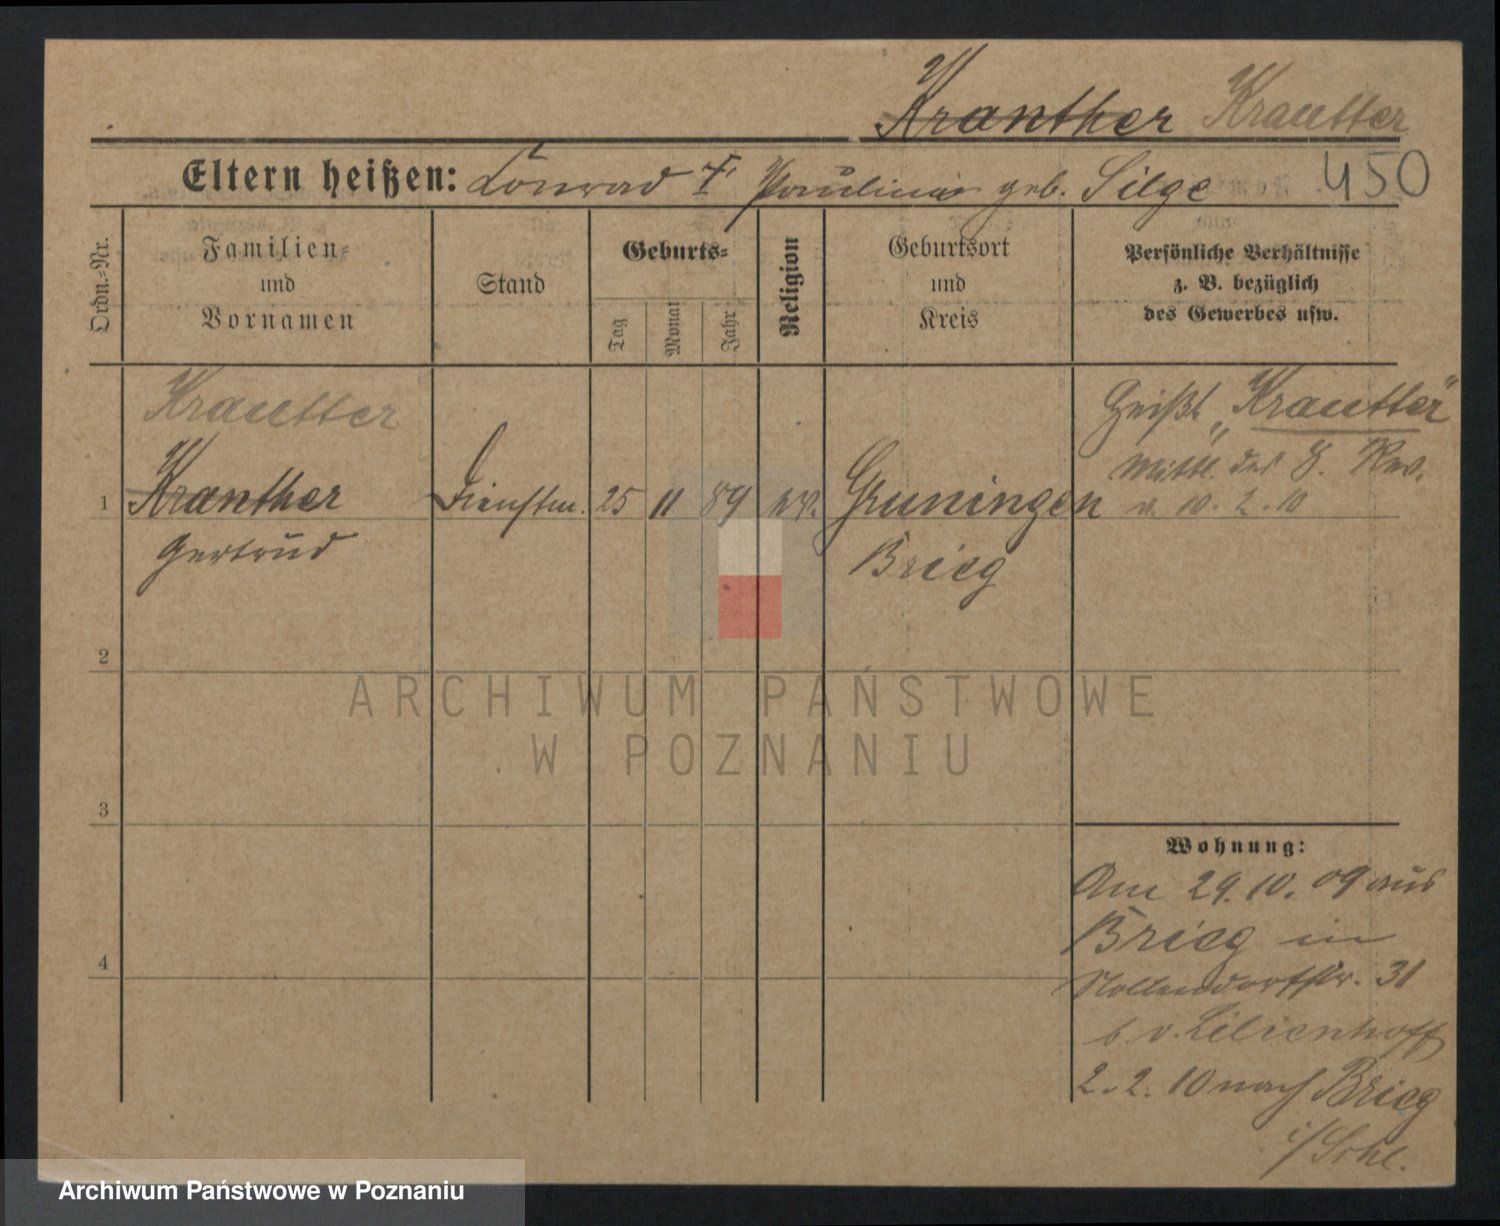 Kranther Krautter
Eltern heißen: Konrad † Pauline geb. Silge 450
Ordn.-Nr.
Familien-
und
Vornamen
Stand
Geburts-
Tag
Monat
Jahr
Religion
Geburtsort
und
Kreis
Persönliche Verhältnisse
z. B. bezüglich
des Gewerbes usw.
Krautter
Heißt „Krautter"
Mittl. des 8. Rev.
v. 10. 2. 10
1 Kranther Dienstm. 25 11 89 ev. Gruningen
Gertrud Brieg
2
3
4
Wohnung:
Am 29. 10. 09 aus
Brieg in
Nollendorfstr. 31
b v. Lilienhoff
2. 2. 10 nach Brieg
i/Schl.
ARCHIWUM PAŃSTWOWE
W POZNANIU
Archiwum Państwowe w Poznaniu